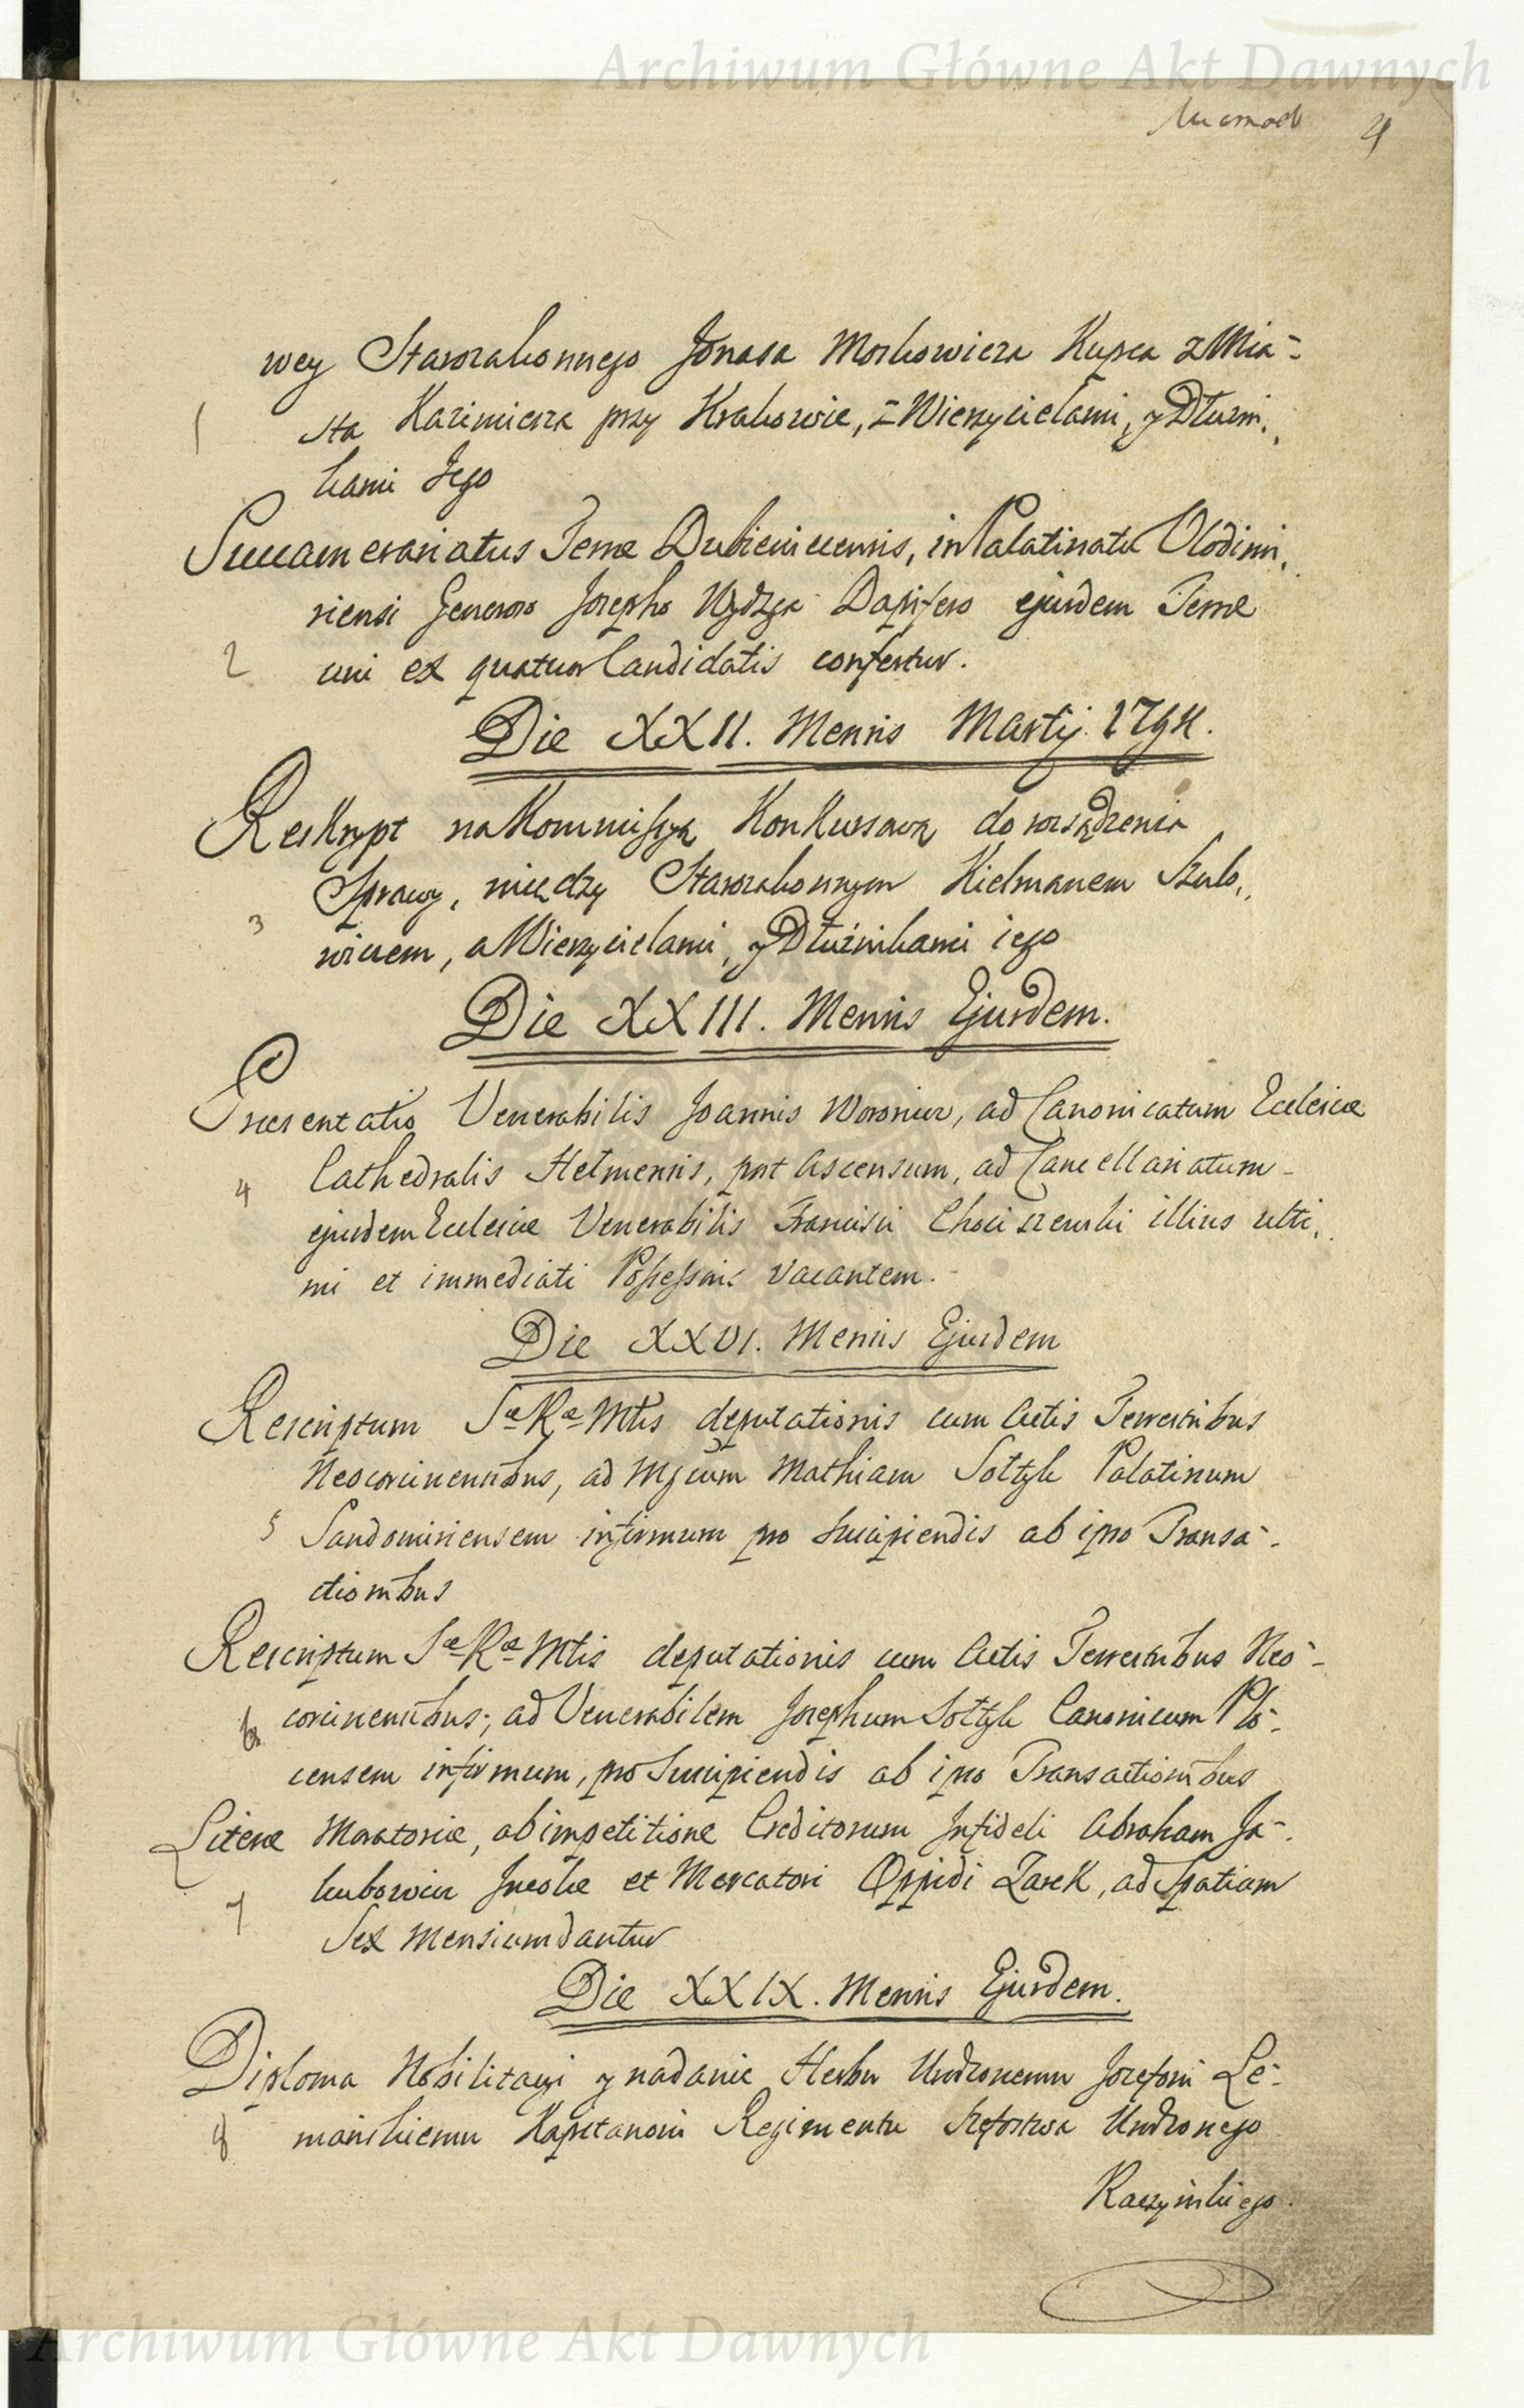 Archiwum Główne Akt Dawnych
4
wey Starozakonnego Jonasa Moskowicza Kupca z Mia-
1 sta Kazimierza przy Krakowie, z Wierzycielami, y Dłużni,,
kami Jego
Succamerariatus Terræ Dubienicensis, in Palatinatu Vlodimi,,
riensi Generoso Josepho Uydzga Dapifero ejusdem Terræ
2 uni ex quatuor Candidatis confertur.
Die XXII. Mensis Martij. 1794.
Reskrypt na Kommissyą Konkursową do rozsądzenia
Sprawy, między Starozakonnym Kielmanem Szulo,,
3 wiczem, a Wierzycielami, y Dłużnikami iego
Die XXIII. Mensis Ejusdem.
Præsentatio Venerabilis Joannis Woronicz, ad Canonicatum Ecclesiæ
4 Cathedralis Helmensis, post Ascensum, ad Cancellariatum
ejusdem Ecclesiæ Venerabilis Francisci Chociszewski illius ulti,,
mi et immediati Possessoris vacantem.
Die XXVI. Mensis Ejusdem
Rescriptum Sæ Ræ Mtis deputationis cum Actis Terrestribus
Neocorcinensibus, ad Mgcum Mathiam Sołtyk Palatinum
5 Sandomiriensem infirmum pro suscipiendis ab ipso Transa-
ctionibus
Rescriptum Sæ Ræ Mtis deputationis cum Actis Terrestribus Neo-
6 corcinensibus, ad Venerabilem Josephum Sołtyk Canonicum Plo-
censem infirmum, pro suscipiendis ab ipso Transactionibus
Literæ Moratoriæ, ab impetitione Creditorum Infideli Abraham Ja-
7 kubowicz Incolæ et Mercatori Oppidi Zarek, ad Spatium
Sex Mensium dantur
Die XXIX. Mensis Ejusdem.
Diploma Nobilitacyi y nadanie Herbu Urodzonemu Jozefowi Le-
8 manskiemu Kapitanowi Regimentu Szefostwa Urodzonego
Raczyńskiego.
Archiwum Główne Akt Dawnych